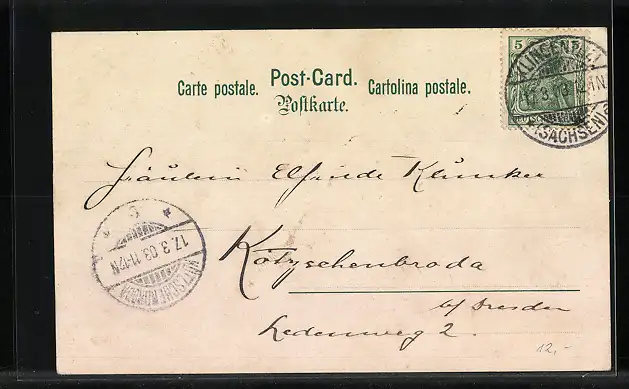 Carte postale. Post-Card. Cartolina postale.
Postkarte.
5
KLINGENTHAL
16.3.03. 12-1N
(SACHSEN)
Fräulein Elfriede Klunker
c
17.3.03.11-12V
KÖTZSCHENBRODA
Kötzschenbroda
b/ Dresden
Ledenweg 2.
12,-